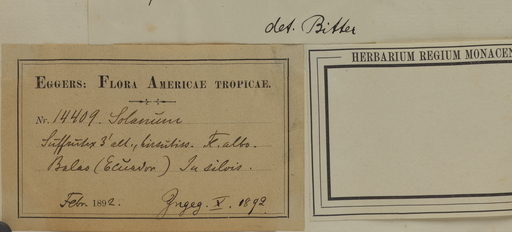 det. Bitter
EGGERS: FLORA AMERICAE TROPICAE.
HERBARIUM REGIUM MONACEN
Nr. 14409. Solanum
Suffrutex 3' alt., hirsutiss. fl. albo.
Balao (Ecuador.) In silvis.
Febr. 1892. Ingeg. X. 1892.